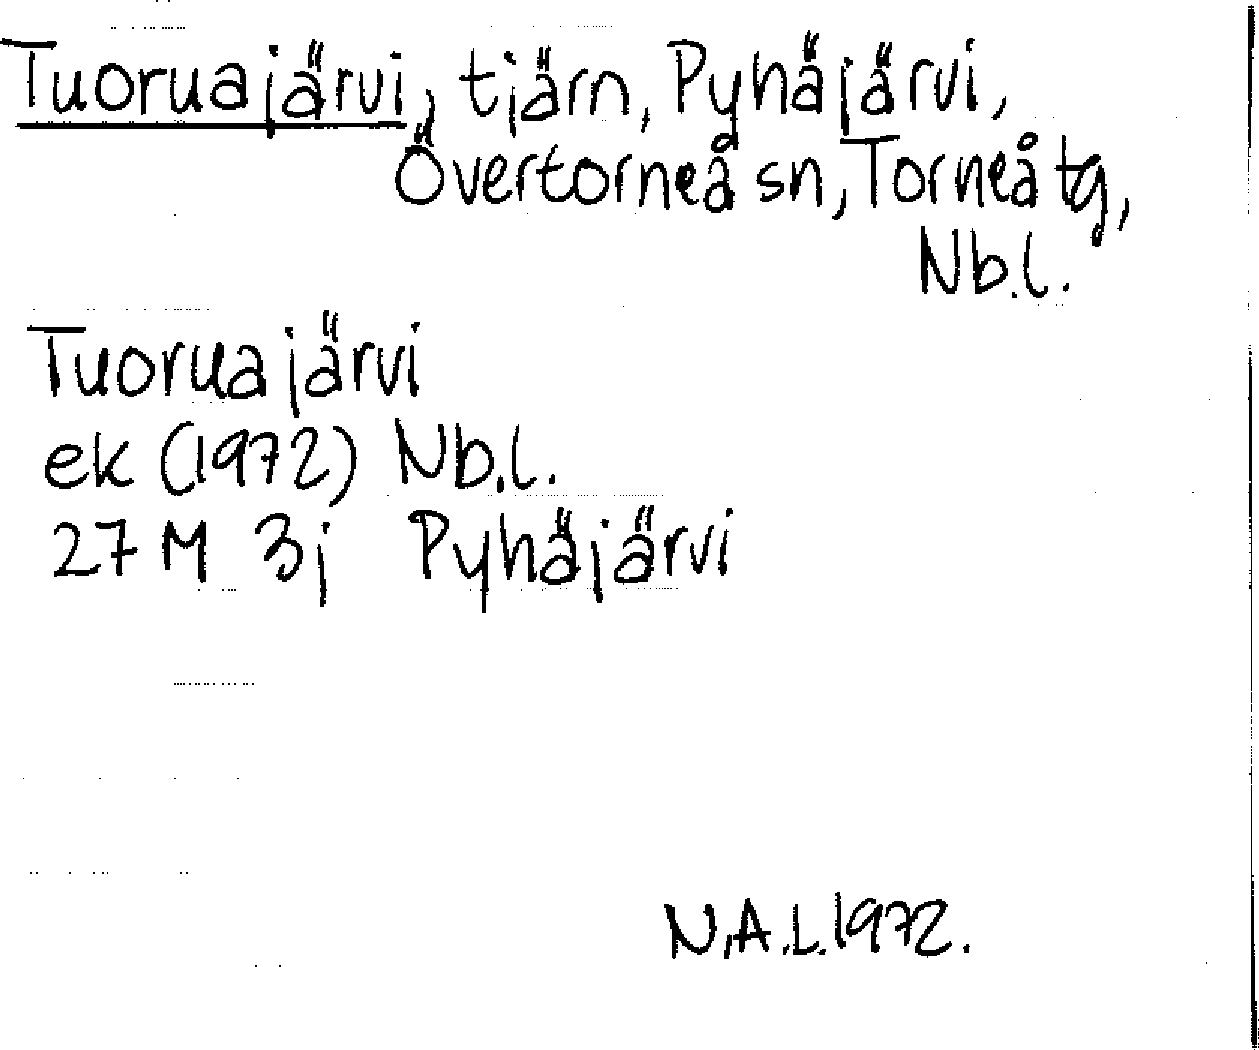 Tuoruajärvi, tjärn, Pyhäjärvi,
Övertorneå sn, Torneå tg,
Nb.l.
Tuoruajärvi
ek (1972) Nb.l.
27 M 3j Pyhäjärvi
N.A.L. 1972.